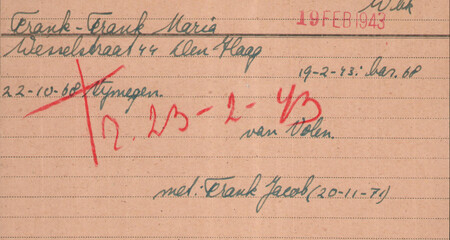 Wbk
19 FEB 1943
Frank-Frank Maria
Wesselstraat 44 Den Haag
19-2-43: bar. 68
22-10-68 Nymegen.
23-2-43
van Volen.
met: Frank Jacob (20-11-71)